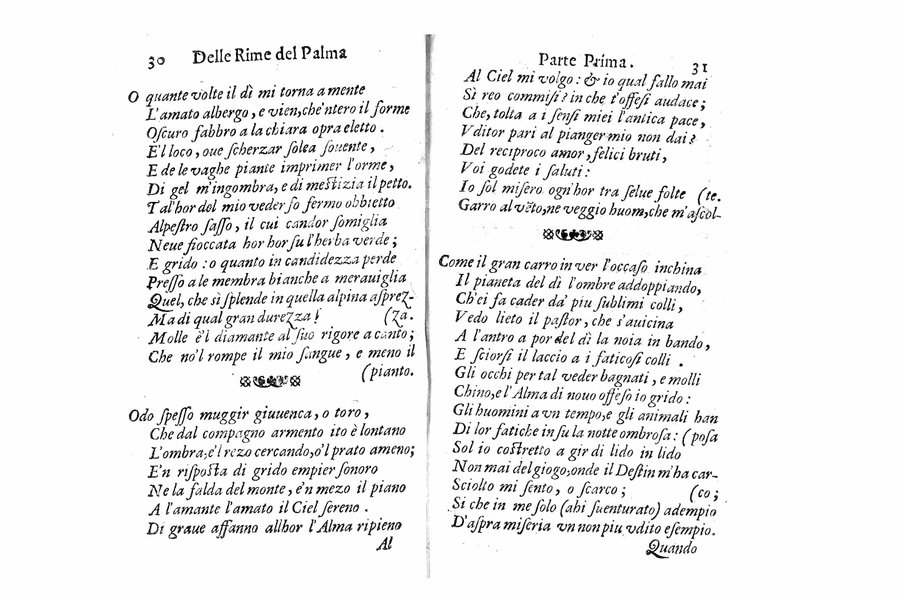 30 Delle Rime del Palma
O quante volte il dì mi torna a mente
L'amato albergo, e vien, che'ntero il forme
Oſcuro fabbro a la chiara opra eletto.
E'l loco, oue ſcherzar ſolea ſouente,
E de le vaghe piante imprimer l'orme,
Di gel m'ingombra, e di meſtizia il petto.
Tal'hor del mio veder ſo fermo obbietto
Alpeſtro ſaſſo, il cui candor ſomiglia
Neue fioccata hor hor ſu l'herba verde;
E grido: o quanto in candidezza perde
Preſſo a le membra bianche a merauiglia
Quel, che sì ſplende in quella alpina aſprez-
Ma di qual gran durezza! (za.
Molle è'l diamante al ſuo rigore a canto;
Che no'l rompe il mio ſangue, e meno il
(pianto.
Odo ſpeſſo muggir giuuenca, o toro,
Che dal compagno armento ito è lontano
L'ombra, e'l rezo cercando, o'l prato ameno;
E'n riſpoſta di grido empier ſonoro
Ne la falda del monte, e'n mezo il piano
A l'amante l'amato il Ciel ſereno.
Di graue affanno allhor l'Alma ripieno
Al
Parte Prima. 31
Al Ciel mi volgo: & io qual fallo mai
Sì reo commiſi? in che t'offeſi audace;
Che, tolta a i ſenſi miei l'antica pace,
Vditor pari al pianger mio non dai?
Del reciproco amor, felici bruti,
Voi godete i ſaluti:
Io ſol miſero ogn'hor tra ſelue folte (te.
Garro al vẽto, ne veggio huom, che m'aſcol-
Come il gran carro in ver l'occaſo inchina
Il pianeta del dì l'ombre addoppiando,
Ch'ei fa cader da' piu ſublimi colli,
Vedo lieto il paſtor, che s'auicina
A l'antro a por del dì la noia in bando,
E ſciorſi il laccio a i faticoſi colli.
Gli occhi per tal veder bagnati, e molli
Chino, e l'Alma di nouo offeſo io grido:
Gli huomini a vn tempo, e gli animali han
Di lor fatiche in ſu la notte ombroſa: (poſa
Sol io coſtretto a gir di lido in lido
Non mai del giogo, onde il Deſtin m'ha car-
Sciolto mi ſento, o ſcarco; (co;
Si che in me ſolo (ahi ſuenturato) adempio
D'aſpra miſeria vn non piu vdito eſempio.
Quando